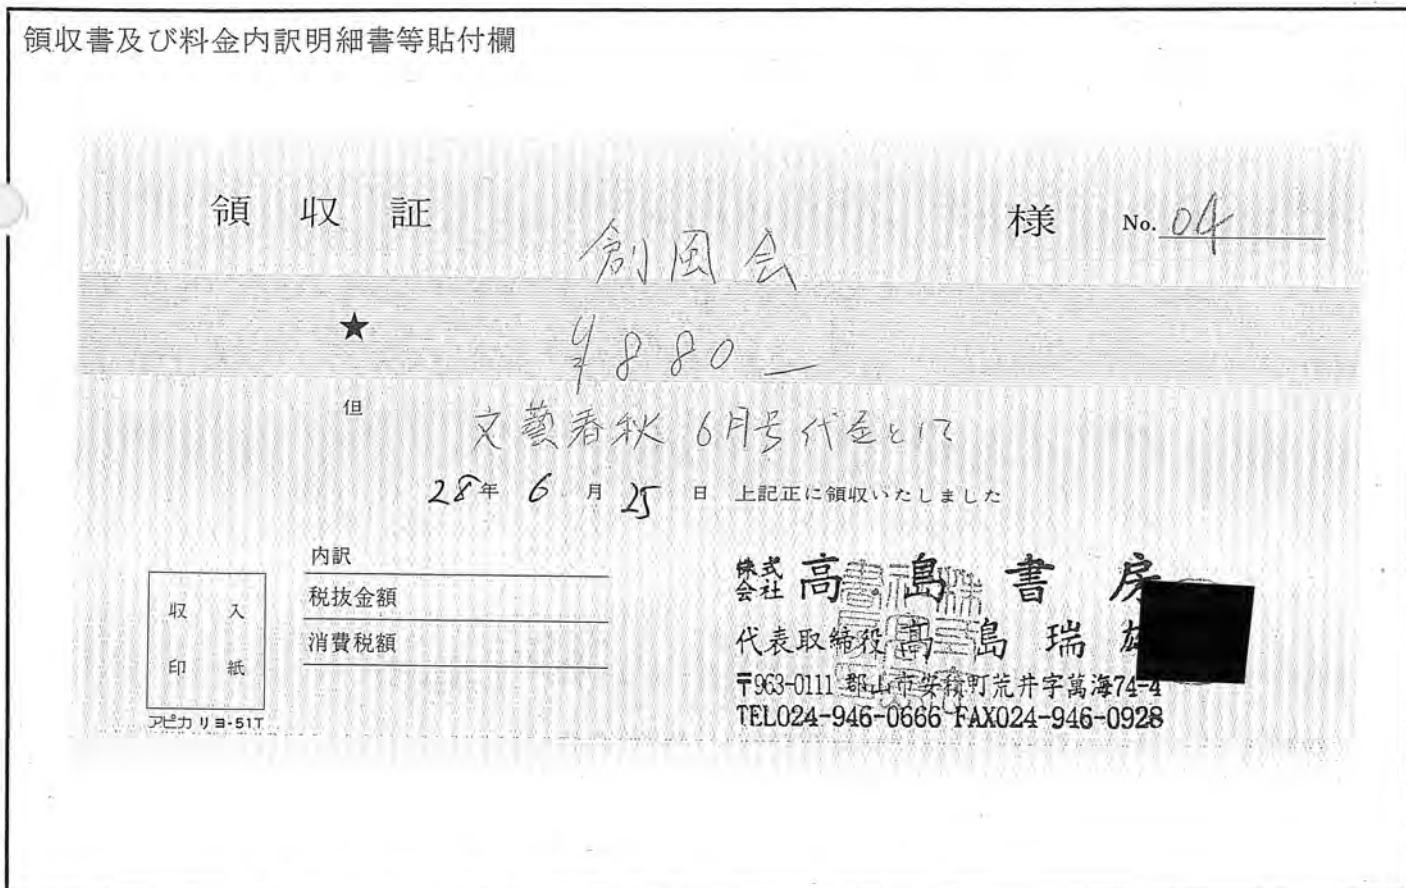 領収書及び料金内訳明細書等貼付欄
領 収 証 創風会 様 No. 04
★ ¥880—
但 文藝春秋 6月号代金として
28年 6月 25日 上記正に領収いたしました
内訳
税抜金額
消費税額
収入
印紙
アピカ リヨ-51T
株式会社 高島書房
代表取締役 高島瑞雄
〒963-0111 郡山市安積町荒井字萬海74-4
TEL024-946-0666 FAX024-946-0928